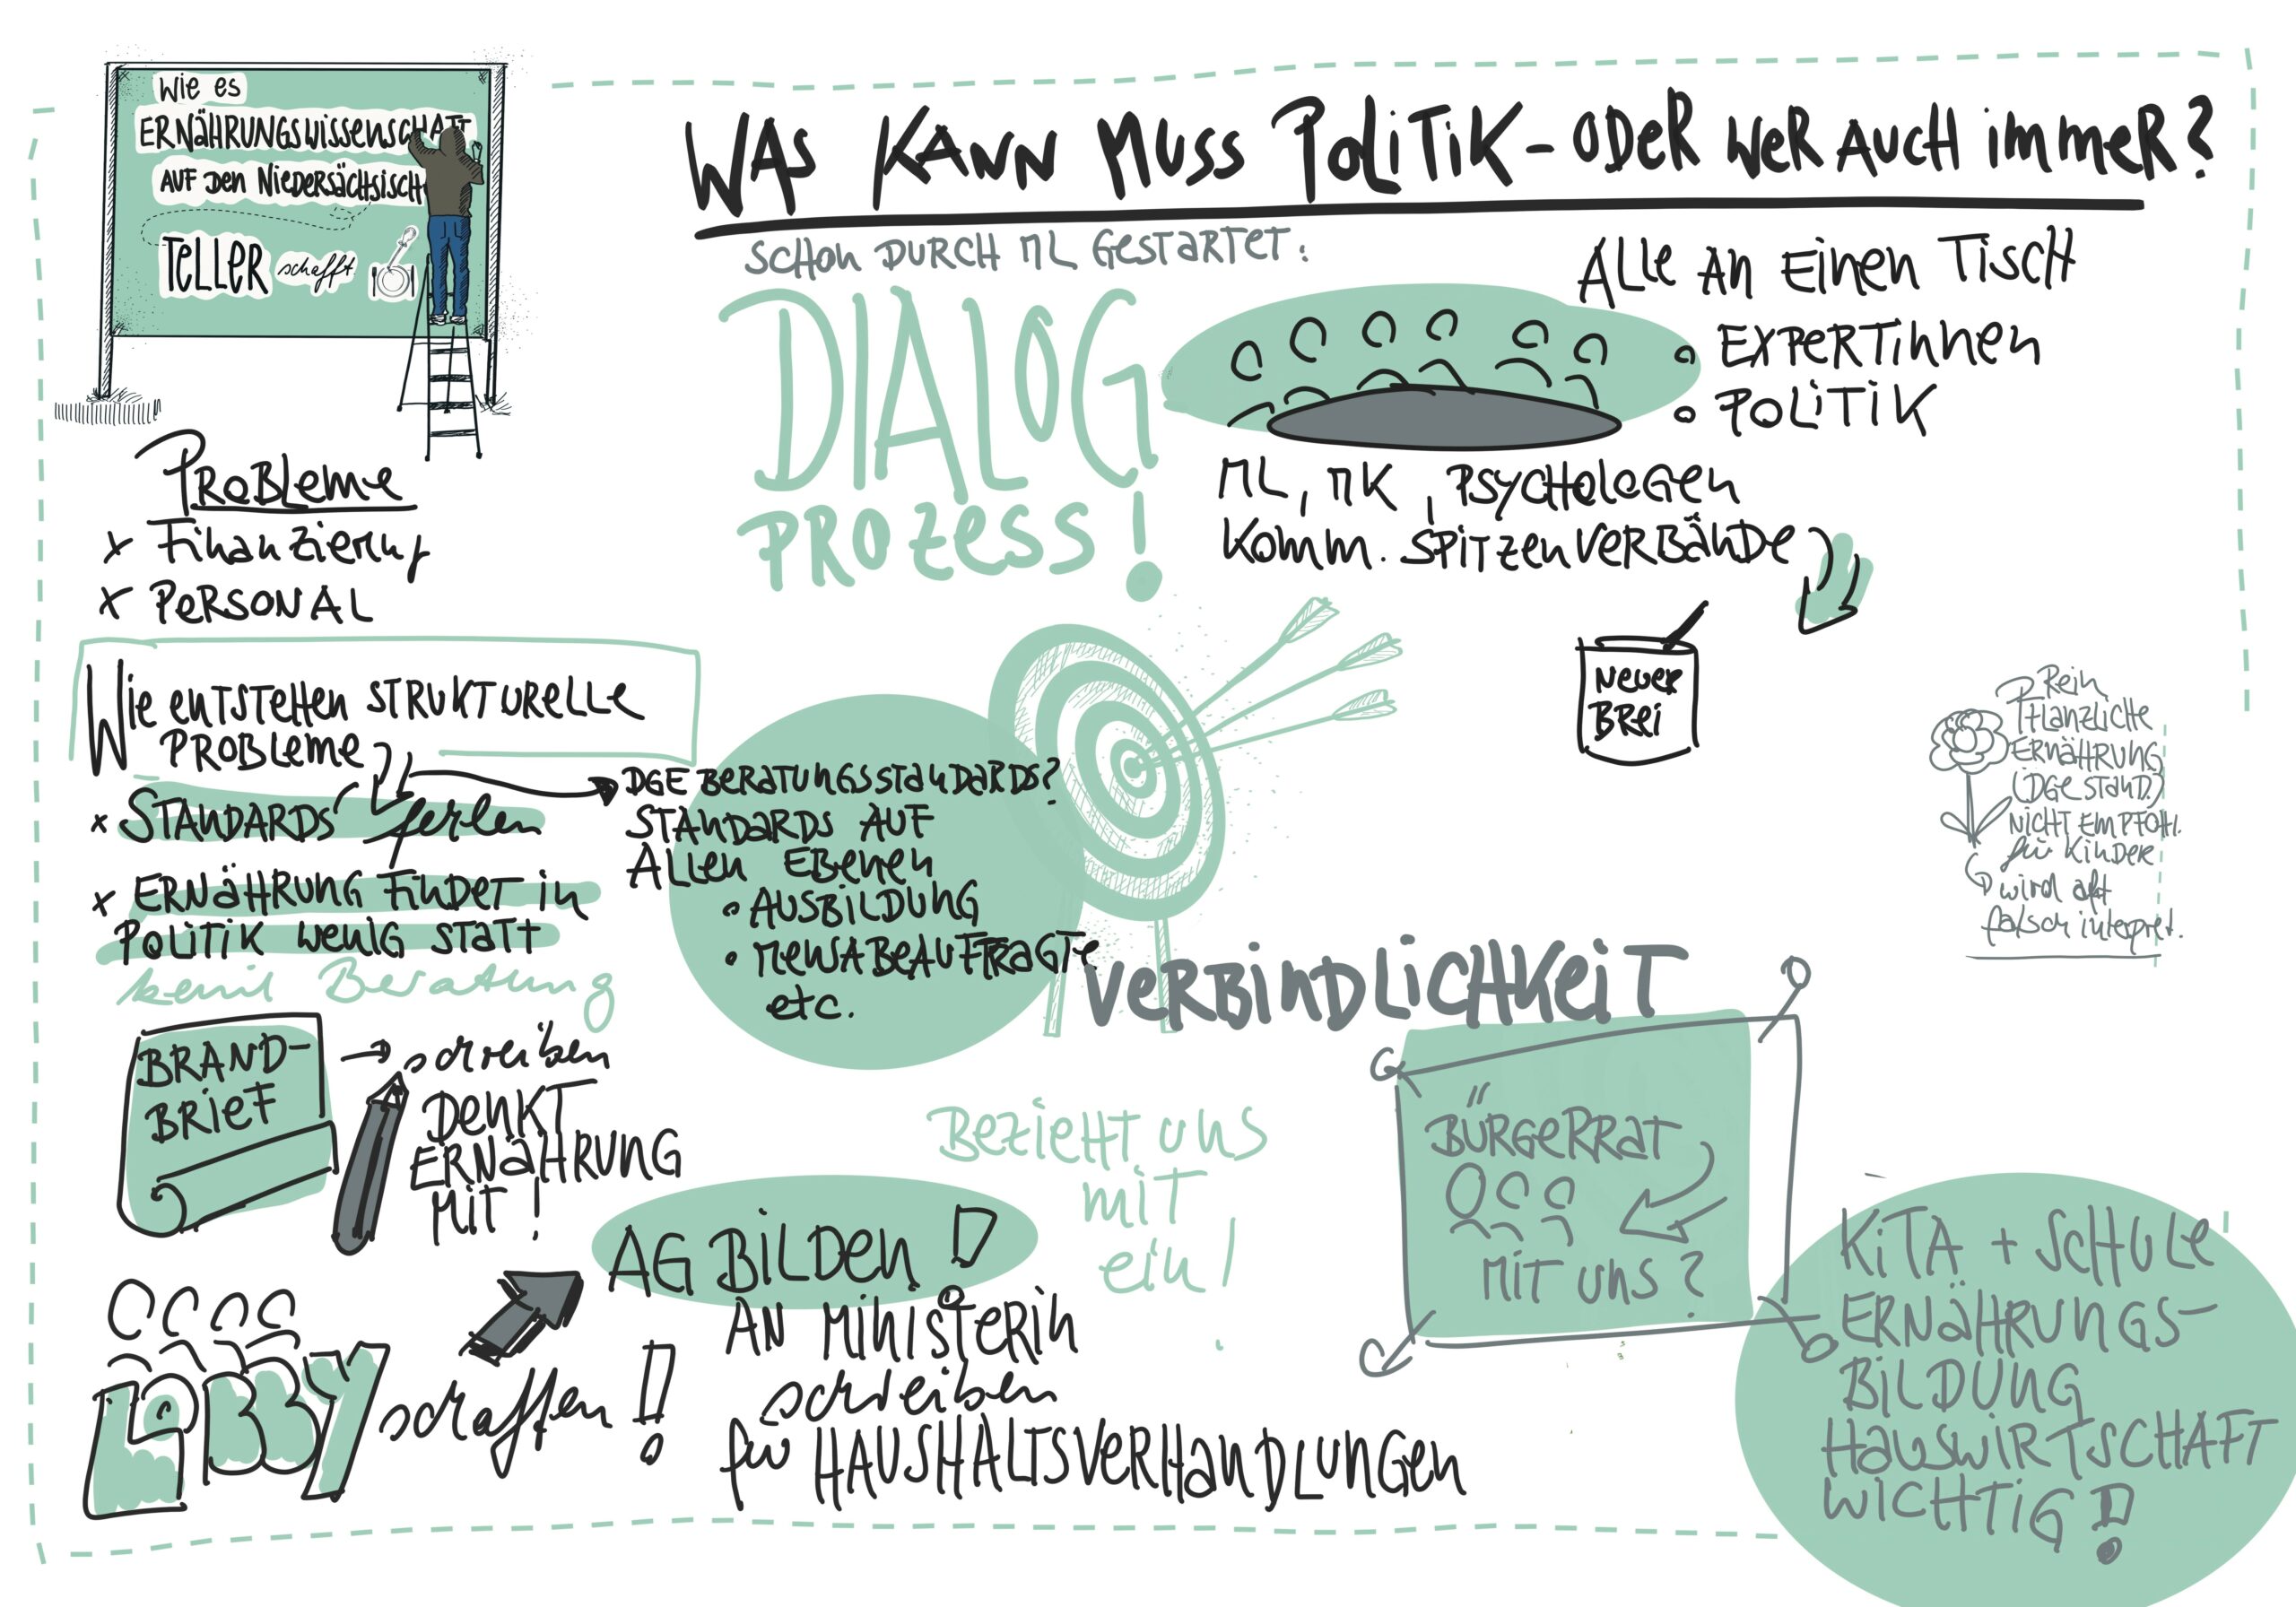 Wie es
ERNÄHRUNGSWISSENSCHAFT
AUF DEN NIEDERSÄCHSISCH
TELLER schafft
WAS KANN MUSS POLITIK - ODER WER AUCH IMMER?
SCHON DURCH ML GESTARTET:
DIALOG
PROZESS!
ALLE AN EINEN TISCH
EXPERTINNEN
POLITIK
ML, MK, PSYCHOLOGEN
KOMM. SPITZENVERBÄNDE
NEUER
BREI
Rein
Pflanzliche
Ernährung
(DGE STAND.)
NICHT EMPFOHL.
für Kinder
wird oft
falsch interpret.
PROBLEME
x Finanzierung
x PERSONAL
WIE ENTSTEHEN STRUKTURELLE
PROBLEME
x STANDARDS fehlen
x ERNÄHRUNG FINDET in
POLITIK WENIG STATT
Beratung
DGE BERATUNGSSTANDARDS?
STANDARDS AUF
ALLEN EBENEN
• AUSBILDUNG
• MENSABEAUFTRAGTE
etc.
VERBINDLICHKEIT
BRAND-
BRIEF
schreiben
DENKT
ERNÄHRUNG
MIT!
BEZIEHT UNS
mit
ein!
BÜRGERRAT
MIT UNS?
LOBBY schaffen!
AG BILDEN!
AN MINISTERIN
schreiben
für HAUSHALTSVERHANDLUNGEN
KITA + SCHULE
ERNÄHRUNGS-
BILDUNG
HAUSWIRTSCHAFT
WICHTIG!